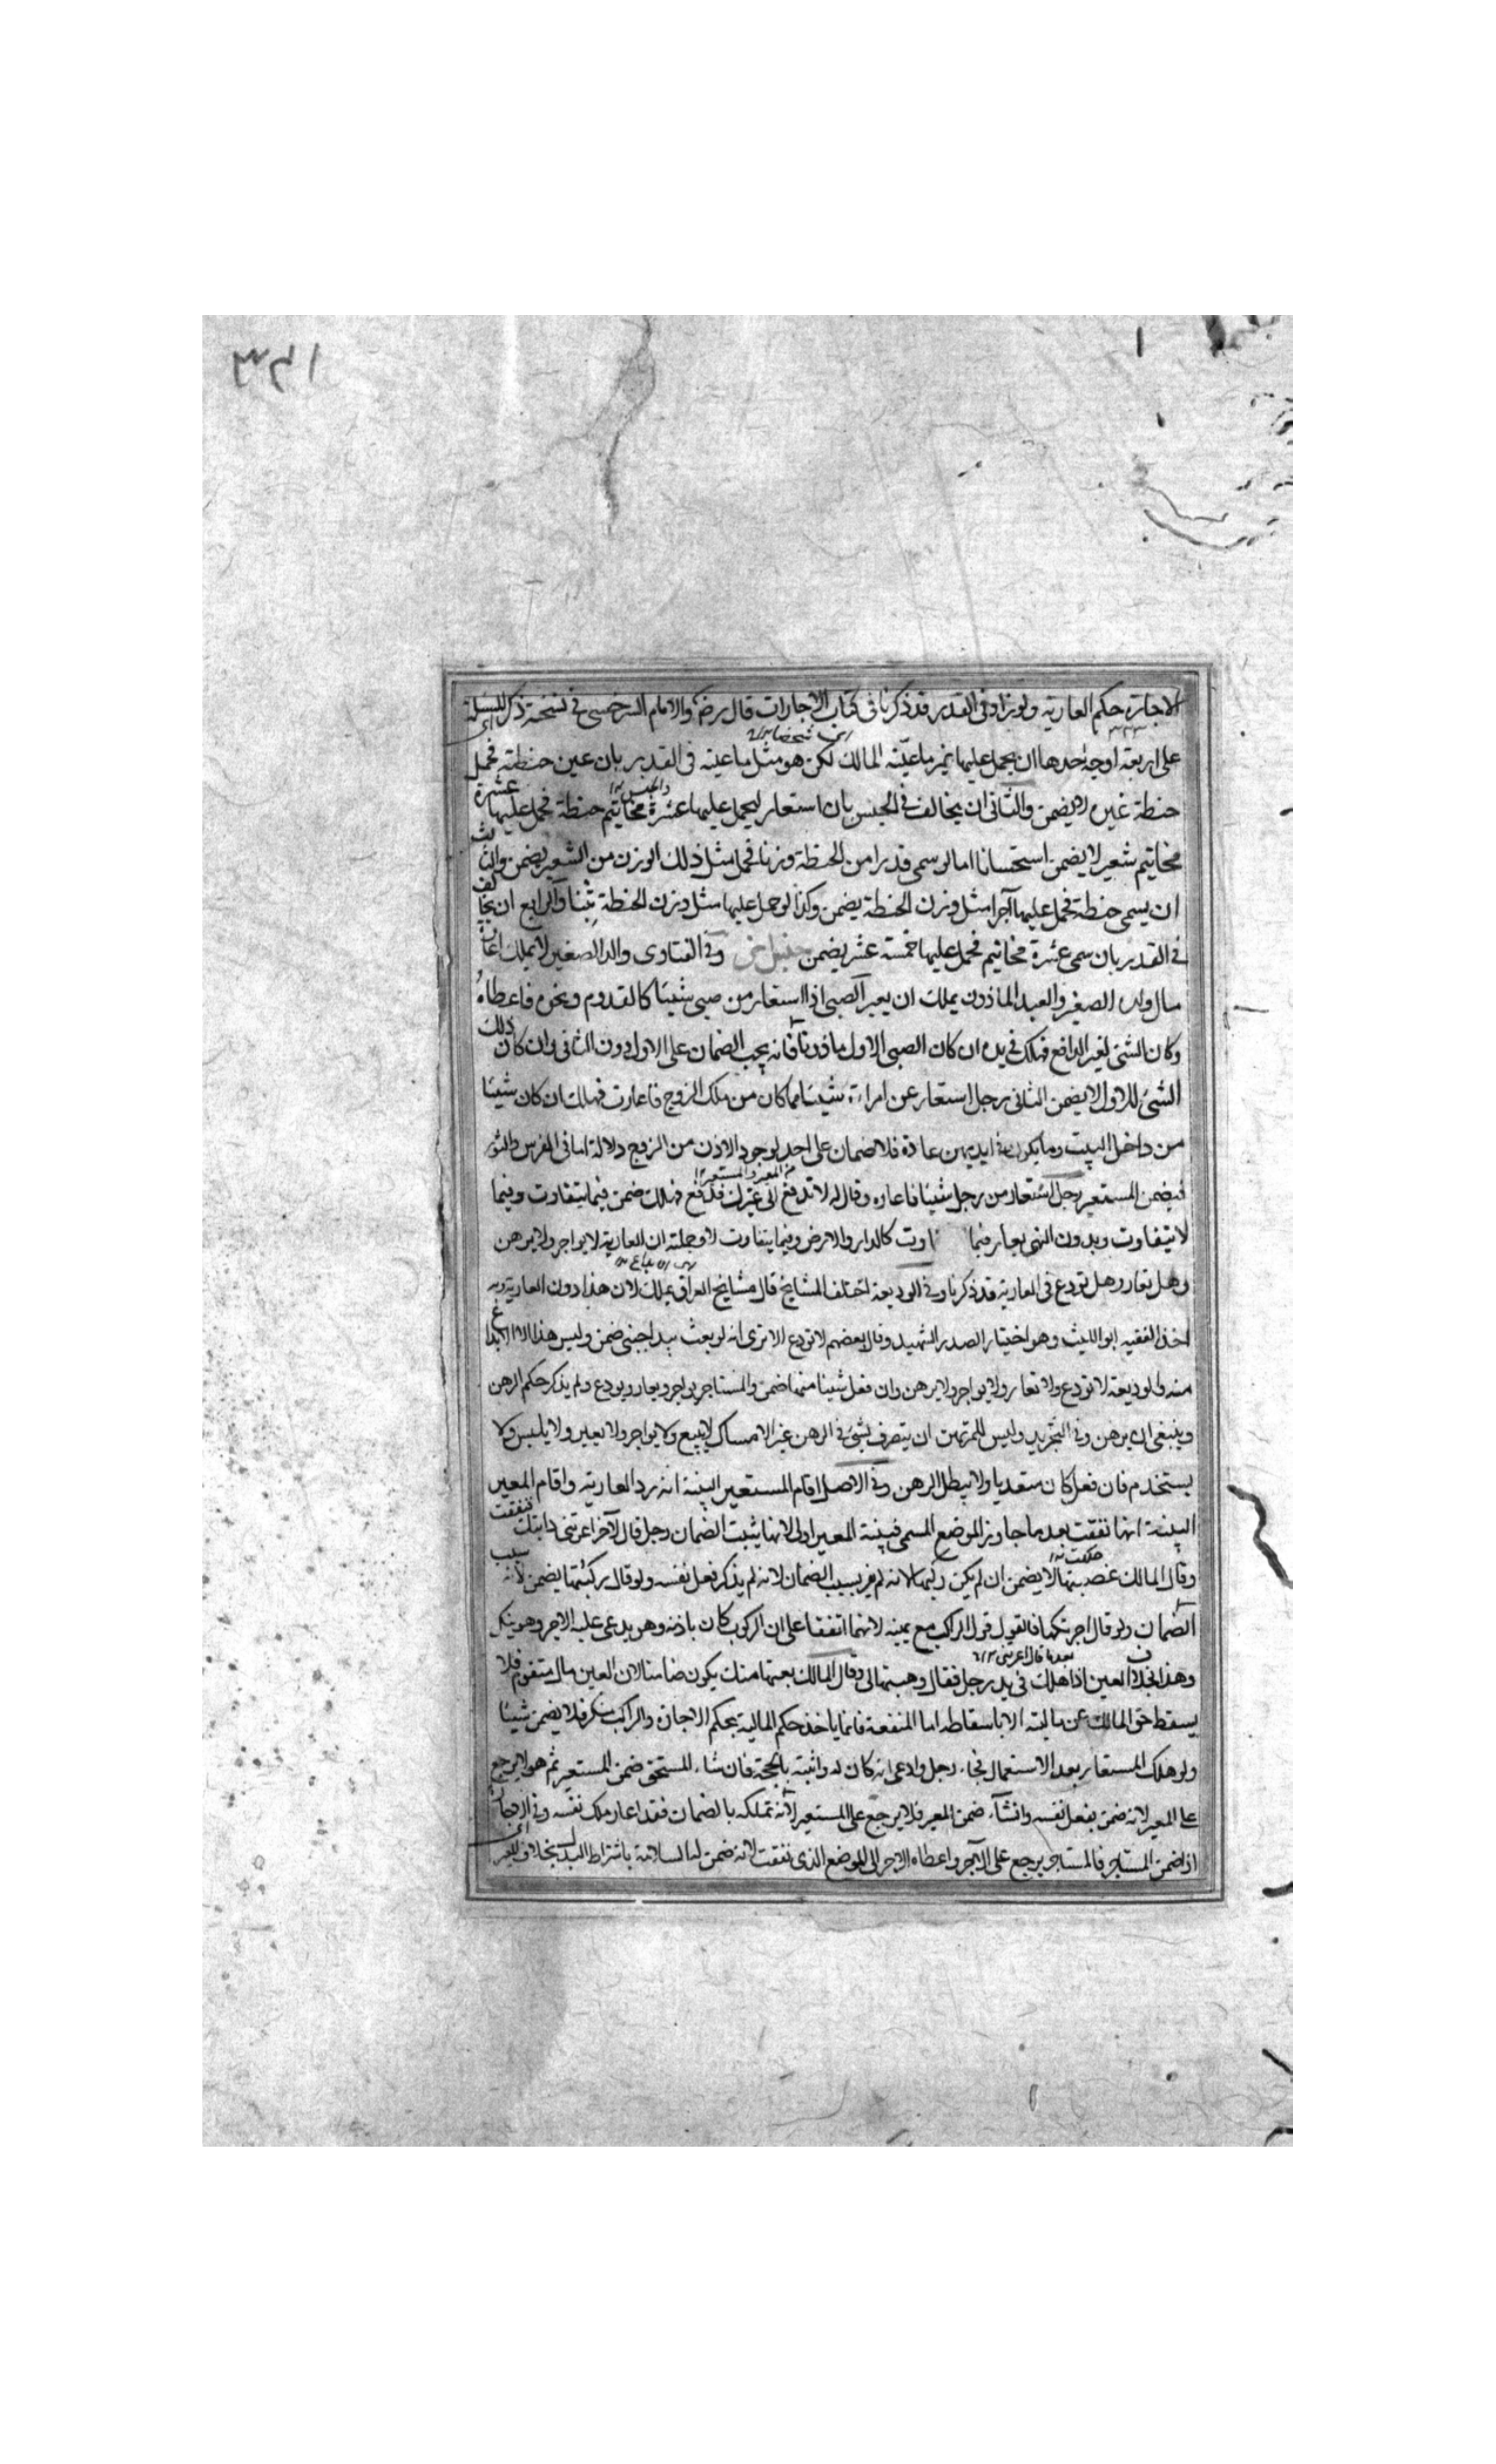 الاجارة حكم العارية ولو زاد فى القدر قد ذكرنا فى كتاب الاجارات قال رضه والامام السرخسى فى نسخته ذكر المسئلة
على اربعة اوجه احدها ان يحمل عليها غير ما عينه المالك لكن هو مثل ما عينه فى القدر بان عين حنطة فحمل
حنطة غيره لا يضمن والثانى ان يخالف فى الجنس بان استعار ليحمل عليها عشرة مخاتيم حنطة فحمل عليها عشرة
مخاتيم شعير لا يضمن استحسانا اما لو سمى قدرا من الحنطة وزنا فحمل مثل ذلك الوزن من الشعير يضمن والثالث
ان يسمى حنطة فحمل عليها آجرا مثل وزن الحنطة يضمن وكذا لو حمل عليها مثل وزن الحنطة تبنا والرابع ان يخالف
فى القدر بان سمى عشرة مخاتيم فحمل عليها خمسة عشر يضمن وفى الفتاوى والد الصغير لا يملك اعارة
مال ولده الصغير والعبد الماذون يملك ان يعير الصبى اذا استعار من صبى شيئا كالقدوم ونحوه فاعطاه
وكان الشئ لغير الدافع فهلك فى يده ان كان الصبى الاول ماذونا فانه يجب الضمان على الاول دون الثانى وان كان ذلك
الشئ للاول لا يضمن الثانى رجل استعار عن امراة شيئا مما كان من ملك الزوج فاعارت فهلك ان كان شيئا
من داخل البيت وما يكون فى ايديهن عادة فلا ضمان على احد لوجود الاذن من الزوج دلالة اما فى الفرس والثور
فيضمن المستعير رجل استعار من رجل شيئا فاعاره وقال له لا تدفع الى غيرك فدفع فهلك ضمن فيما يتفاوت وفيما
لا يتفاوت وبدون النهى يعار فيما كالدار والارض وفيما يتفاوت لا وجملته ان العارية لا يواجر ولا يرهن
وهل يعار وهل تودع فى العارية قد ذكرنا وفى الوديعة اختلف المشايخ قال مشايخ العراق يملك لان هذا دون العارية وبه
اخذ الفقيه ابو الليث وهو اختيار الصدر الشهيد وقال بعضهم لا تودع الا ترى انه لو بعث بيد اجنبى ضمن وليس هذا الا ايداع
منه والوديعة لا تودع ولا تعار ولا يواجر ولا يرهن وان فعل شيئا منها ضمن والمستاجر يواجر ويعار ويودع ولم يذكر حكم الرهن
وينبغى ان يرهن وفى التجريد وليس للمرتهن ان يتصرف بشئ فى الرهن غير الامساك لا يبيع ولا يواجر ولا يعير ولا يلبس ولا
يستخدم فان فعل كان متعديا ولا يبطل الرهن وفى الاصل اقام المستعير البينة انه رد العارية واقام المعير
البينة انها نفقت بعد ما جاوز الموضع المسمى فبينة المعير اولى لانها يثبت الضمان رجل قال لآخر اعرتنى دابتك فنفقت
وقال المالك غصبتها لا يضمن ان لم يكن ركبها لانه لم يقر بسبب الضمان لانه لم يذكر فعل نفسه ولو قال ركبتها يضمن لانه سبب
الضمان ولو قال اجرتكها فالقول قول الراكب مع يمينه لانهما اتفقا على ان الركوب كان باذنه وهو يدعى عليه الاجر وهو ينكر
وهذا بخلاف العين اذا هلك فى يد رجل فقال وهبتها لى وقال المالك بعتها منك يكون ضامنا لان العين مال متقوم فلا
يسقط حق المالك عن ماليته الا باسقاطه اما المنفعة فانما ياخذ حكم المالية بحكم الاجارة والراكب منكر فلا يضمن شيئا
ولو هلك المستعار بعد الاستعمال فجاء رجل وادعى انه كان له واثبته بالحجة فان شاء المستحق ضمن المستعير ثم هو لا يرجع
على المعير لانه ضمن بفعل نفسه وان شاء ضمن المعير فلا يرجع على المستعير لانه تملكه بالضمان فقد اعار ملك نفسه وفى الاجارة
اذا ضمن المستاجر فالمستاجر يرجع على الآجر واعطاه الاجر الى الموضع الذى نفقت لانه ضمن له السلامة باشتراط البدل بخلاف المعير